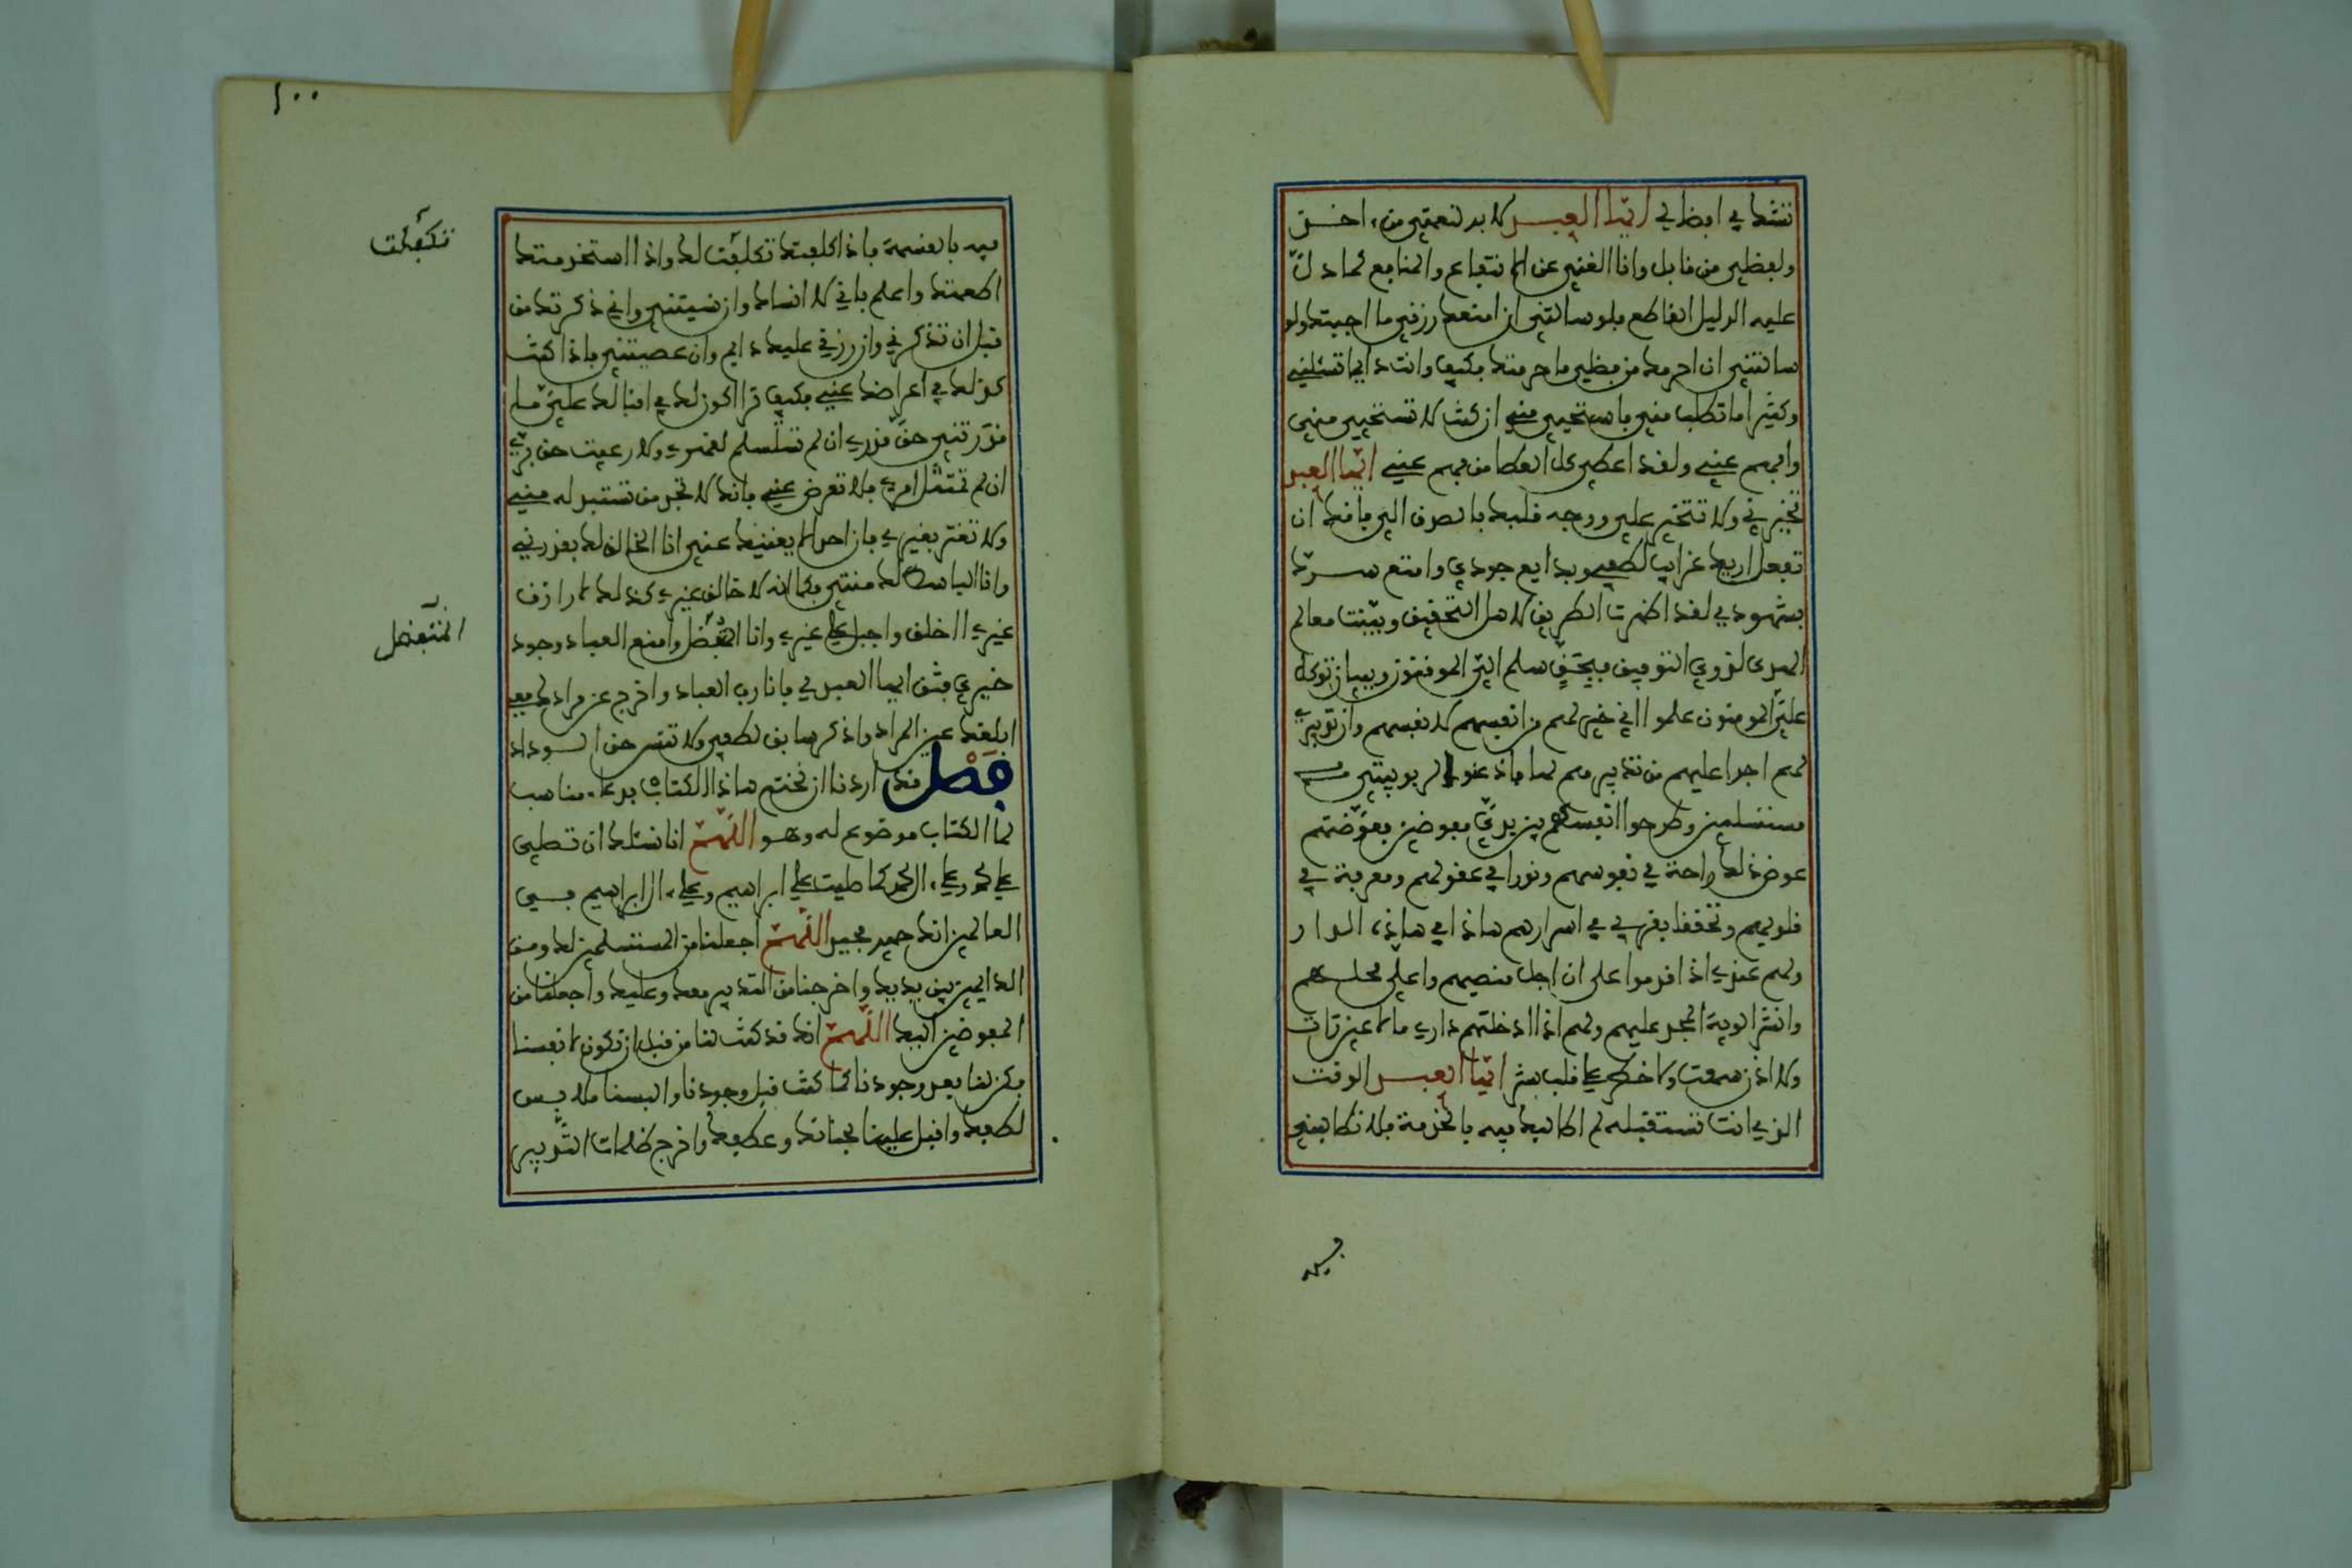 تنشك في افضالي ايها العبد لا بد لنعمتي من ءاخذ
ولفظلي من قابل وانا الغني عن الانتفاع والمنافع لما دل
عليه الدليل القاطع فلو سالتني ان امنعك رزقي ما اجبتك ولو
سالتني ان احرمك من فظلي ما حرمتك فكيف وانت دايما تسئلني
وكثيرا ما تطلب مني فاستحيي مني ان كنت لا تستحيي مني
وافهم عني ولقد اعطي كل العطا من فهم عني ايها العبد
تخيرني ولا تتخير علي ووجه قلبك بالصدق الي فانك ان
تفعل اريك غرايب لطفي وبدايع جودي وامتع سرك
بشهودي لقد اظهرت الطريق لاهل التحقيق وبينت معالم
الهدى لذوي التوفيق فبحق سلم الي الموقنون وببيان توكل
علي المومنون علموا اني خير لهم من انفسهم لانفسهم وان تدبيري
لهم اجدا عليهم من تدبيرهم لها فاذعنوا لربوبيتي
مستسلمين وطرحوا انفسهم بين يدي مفوضين فعوضتهم
عوض ذلك راحة في نفوسهم ونورا في عقولهم ومعرفة في
قلوبهم وتحققا بقربي في اسرارهم هاذا في هاذه الدار
ولهم عندي اذا قدموا علي ان اجل منصبهم واعلي محلهم
وانشر الوية المجد عليهم ولهم اذا ادخلتهم داري ما لا عين رات
ولا اذن سمعت ولا خطر على قلب بشر ايها العبد الوقت
الذي انت تستقبله لم اطالبك فيه بالخدمة فلا تطالبني
فيه
١٠٠
فيه بالقسمة فاذا كلفتك تكلفت لك واذا استخدمتك
تكفلت
اطعمتك واعلم باني لا انساك وان نسيتني واني ذكرتك من
قبل ان تذكرني وان رزقي عليك دايم وان عصيتني فاذا كنت
كذلك في اعراضك عني فكيف ترا اكون لك في اقبالك علي ما
قدرتني حق قدري ان لم تستسلم لقهري ولا رعيت حق بري
ان لم تمتثل امري فلا تعرض عني فانك لا تجد من تستبدله مني
ولا تغتر بغيري فان احدا لا يغنيك عني انا الخالق لك بقدرتي
وانا الباسط لك منتي فكما انه لا خالق غيري كذلك لا رازق
غيري ااخلق واحيل على غيري وانا المتفظل وامنع العباد وجود
المتفضل
خيري فثق ايها العبد بي فانا رب العباد واخرج عن مرادك معي
ابلغك عين المراد واذكر سابق لطفي ولا تنس حق الوداد
فصل قد اردنا ان نختم هاذا الكتاب بدعاء مناسب
لما الكتاب موضوع له وهو اللهم انا نسئلك ان تصلي
على محمد وعلى ءال محمد كما صليت على ابراهيم وعلى ءال ابراهيم في
العالمين انك حميد مجيد اللهم اجعلنا من المستسلمين لك ومن
الدايمين بين يديك واخرجنا من التدبير معك وعليك واجعلنا من
المفوضين اليك اللهم انك قد كنت لنا من قبل ان نكون لانفسنا
فكن لنا بعد وجودنا كما كنت قبل وجودنا والبسنا ملابس
لطفك واقبل علينا بحنانك وعطفك واخرج ظلمات التدبير